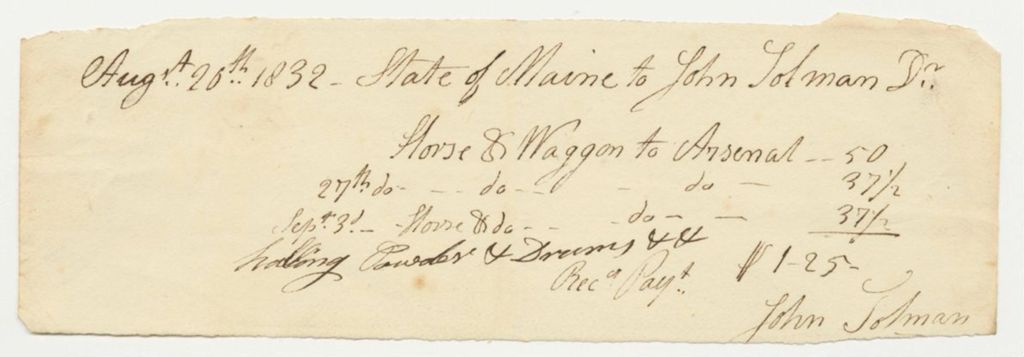 Augst. 20th. 1832 - State of Maine to John Tolman Dr.
Horse & Waggon to Arsenal -- 50
27th do - -- do -- - do - 37 1/2
Sept. 3d. - Horse & do - - - do - - 37 1/2
halling Powder & Drums && $1-25-
Recd Payt.
John Tolman